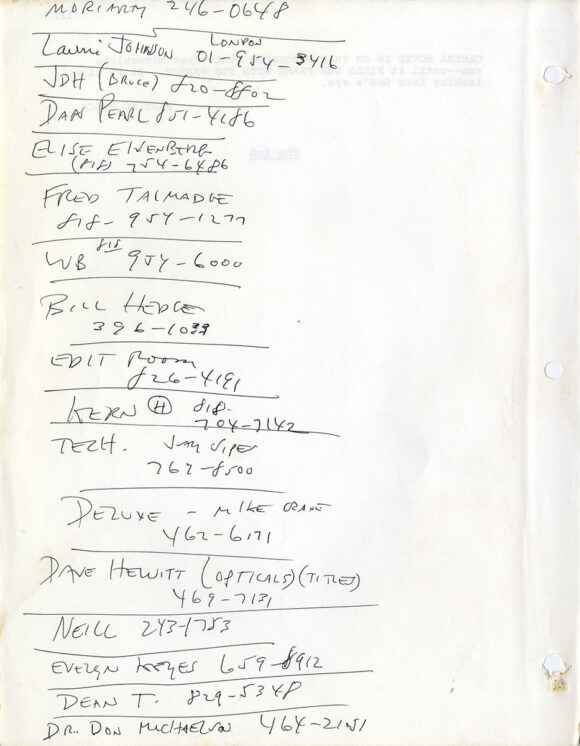 MORIARTY 246-0648
LONDON
Laurie JOHNSON 01-954-3416
JDH (BRUCE) 820-8802
DAN PEARL 851-4186
ELISE EISENBERG
(818) 754-6486
FRED TALMADGE
818-954-1277
WB 818 954-6000
BILL HEDGE
396-1033
EDIT ROOM
826-4191
KERN (H) 818-
704-7142
TECH. JAY
762-8500
DELUXE - MIKE CRANE
462-6171
DAVE HEWITT (OPTICALS)(TITLES)
469-7131
NEILL 243-1753
EVELYN KEYES 659-8912
DEAN T. 829-5348
DR. DON MICHAELSON 464-2151
CAMERA MOVES IN ON THE
--until it FILLS THE FRAME WITH THE
looking into God's eye.
The End